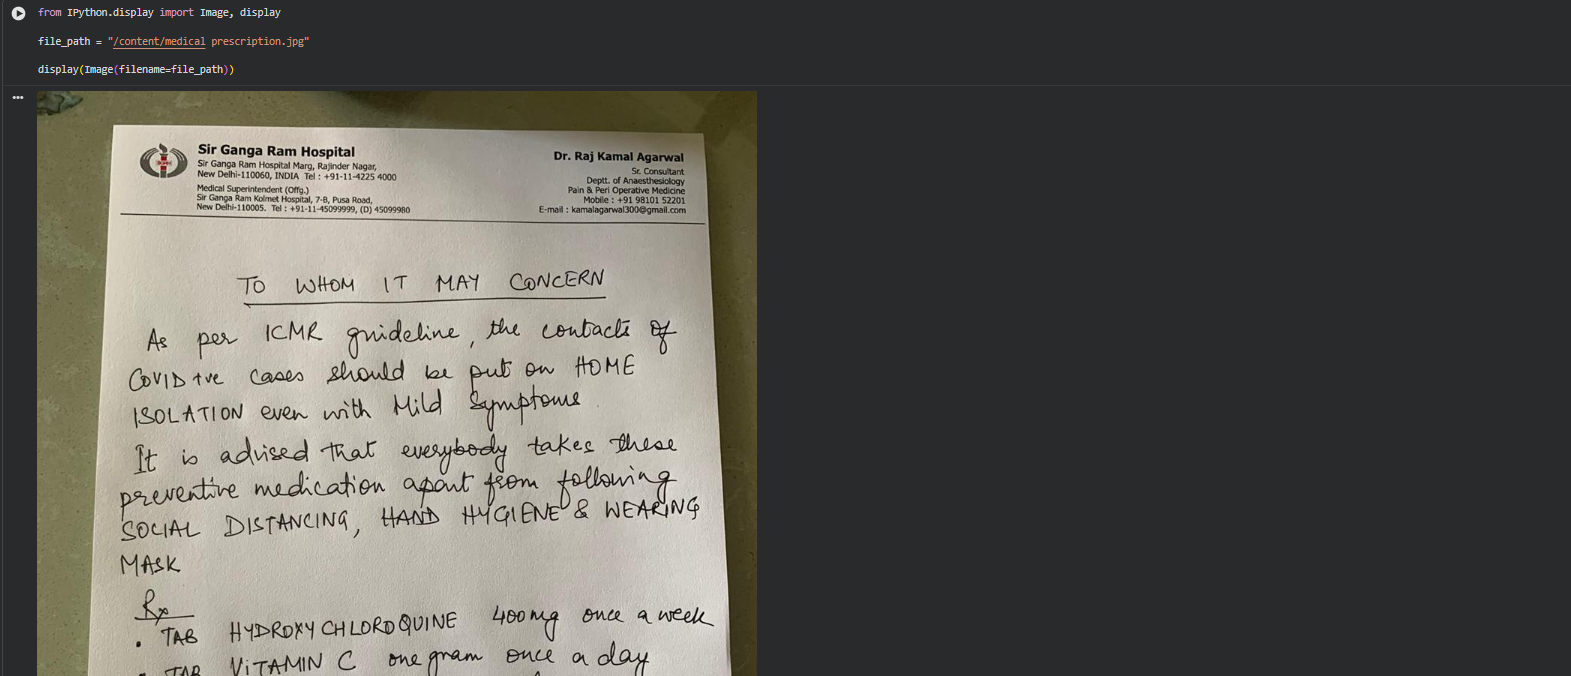 from IPython.display import Image, display
file_path = "/content/medical prescription.jpg"
display(Image(filename=file_path))
Sir Ganga Ram Hospital
Sir Ganga Ram Hospital Marg, Rajinder Nagar,
New Delhi-110060, INDIA Tel : +91-11-4225 4000
Medical Superintendent (Offg.)
Sir Ganga Ram Kolmet Hospital, 7-B, Pusa Road,
New Delhi-110005. Tel : +91-11-45099999, (D) 45099980
Dr. Raj Kamal Agarwal
Sr. Consultant
Deptt. of Anaesthesiology
Pain & Peri Operative Medicine
Mobile : +91 98101 52201
E-mail : kamalagarwal300@gmail.com
TO WHOM IT MAY CONCERN
As per ICMR guideline, the contacts of
COVID +ve cases should be put on HOME
ISOLATION even with Mild Symptoms
It is advised that everybody takes these
preventive medication apart from following
SOCIAL DISTANCING, HAND HYGIENE & WEARING
MASK
Rx
• TAB HYDROXYCHLOROQUINE 400mg once a week
• TAB VITAMIN C one gram once a day